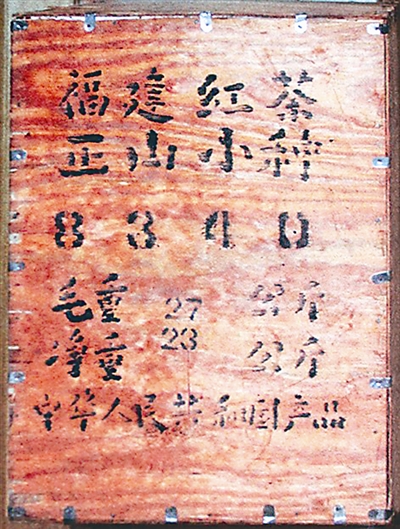 福建红茶
正山小种
8340
毛重 27 公斤
净重 23 公斤
中华人民共和国产品